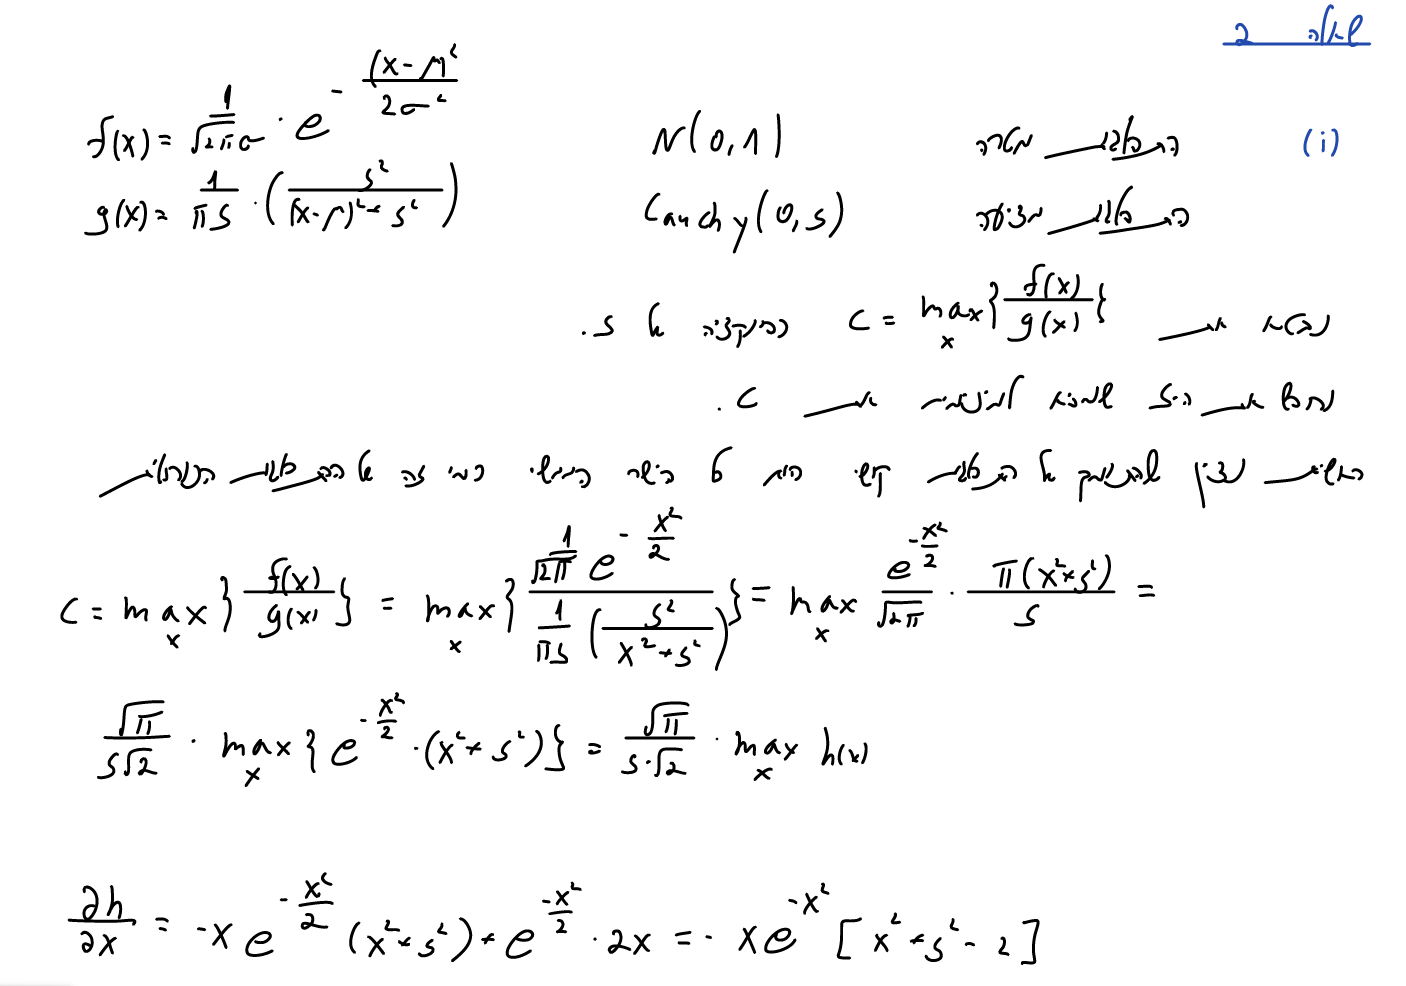 שאלה 2
(i) התפלגות מטרה N(0,1) f(x) = \frac{1}{\sqrt{2\pi}\sigma} \cdot e^{-\frac{(x-\mu)^2}{2\sigma^2}}
התפלגות מציעה Cauchy(0,s) g(x) = \frac{1}{\pi s} \cdot \left(\frac{s^2}{(x-\mu)^2+s^2}\right)
נמצא את C = \max_x \{\frac{f(x)}{g(x)}\} כפונקציה של s.
נחפש את ה-s שמביא למינימום את C.
ראשית נציין שהתומך של התפלגות קושי הוא כל הישר הממשי כמו זה של ההתפלגות הנורמלית
C = \max_x \{\frac{f(x)}{g(x)}\} = \max_x \{\frac{\frac{1}{\sqrt{2\pi}} e^{-\frac{x^2}{2}}}{\frac{1}{\pi s}\left(\frac{s^2}{x^2+s^2}\right)}\} = \max_x \frac{e^{-\frac{x^2}{2}}}{\sqrt{2\pi}} \cdot \frac{\pi(x^2+s^2)}{s} =
\frac{\sqrt{\pi}}{s\sqrt{2}} \cdot \max_x \{e^{-\frac{x^2}{2}} \cdot (x^2+s^2)\} = \frac{\sqrt{\pi}}{s \cdot \sqrt{2}} \cdot \max_x h(x)
\frac{\partial h}{\partial x} = -x e^{-\frac{x^2}{2}} (x^2+s^2) + e^{-\frac{x^2}{2}} \cdot 2x = -x e^{-x^2} [x^2+s^2-2]